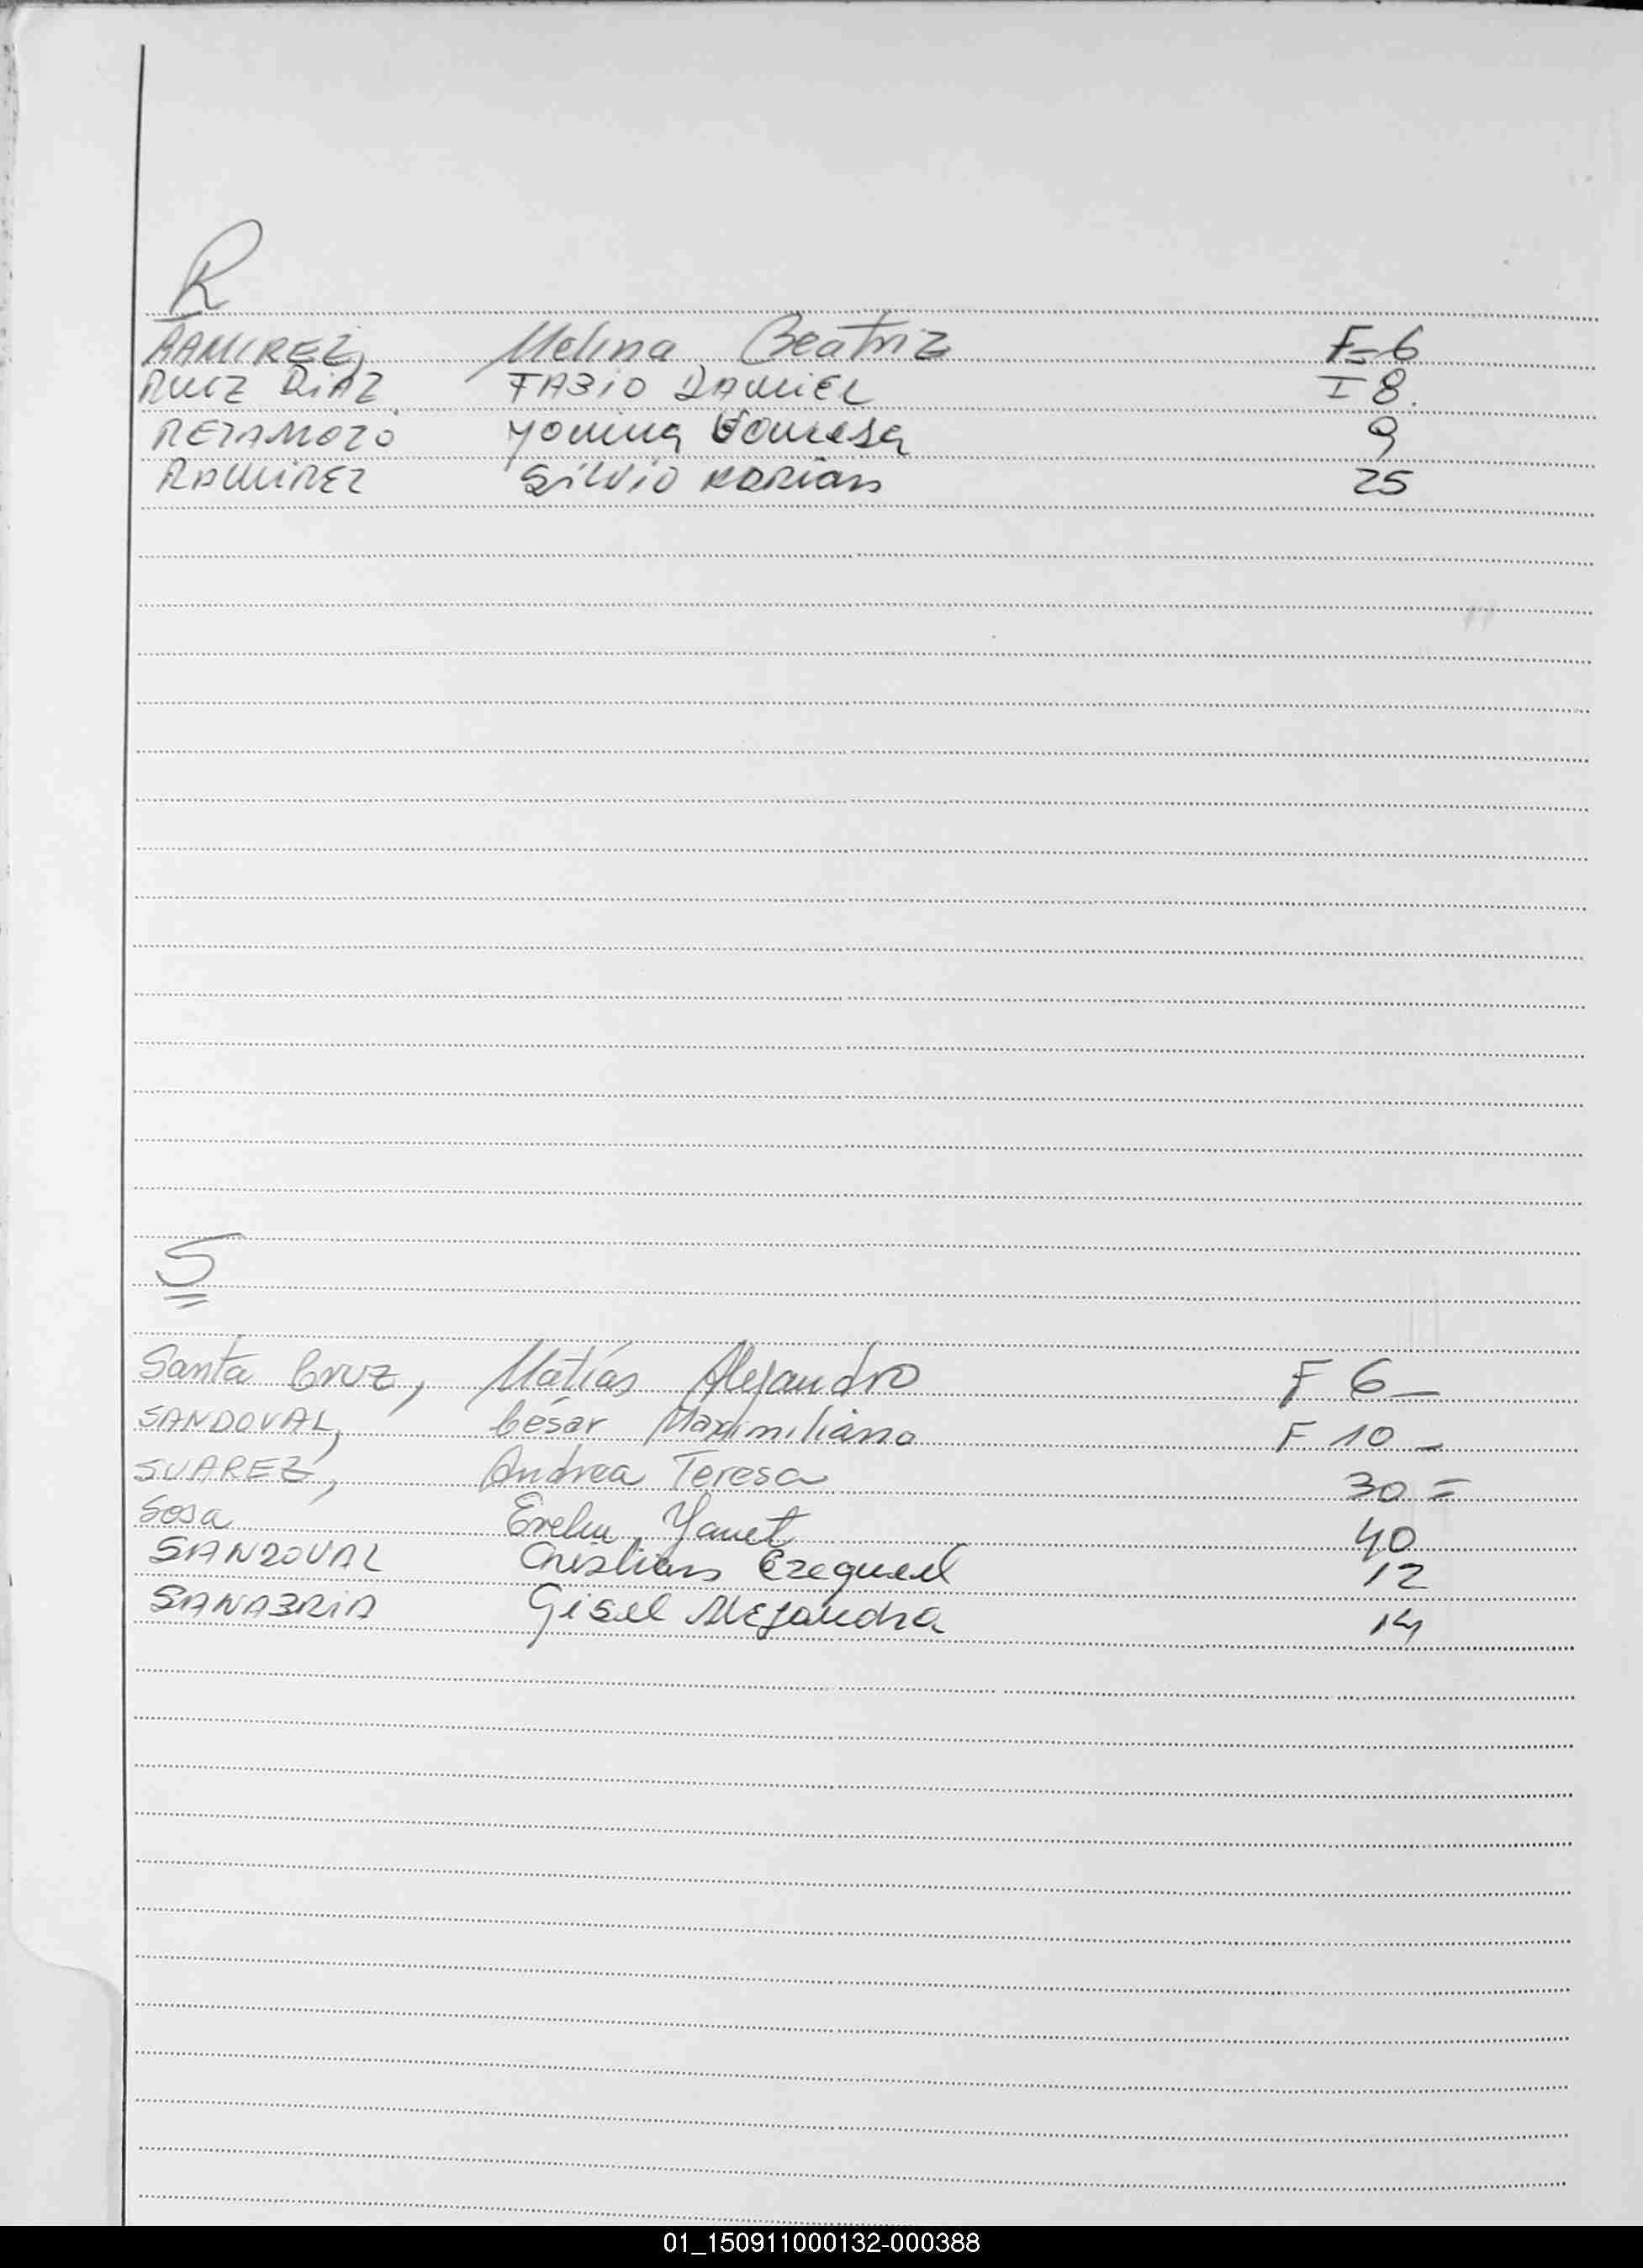 R
RAMIREZ, Melina Beatriz F=6
RUIZ DIAZ FABIO DANIEL I 8.
RETAMOZO Yonina Vanesa 9
RAMIREZ Silvio Adrian 25
S
Santa Cruz, Matías Alejandro F 6_
SANDOVAL, César Maximiliano F 10_
SUAREZ, Andrea Teresa 30=
Sosa Evelin Yanet 40
SANDOVAL Cristian Ezequiel 12
SANABRIA Gisel Alejandra 14
01_150911000132-000388